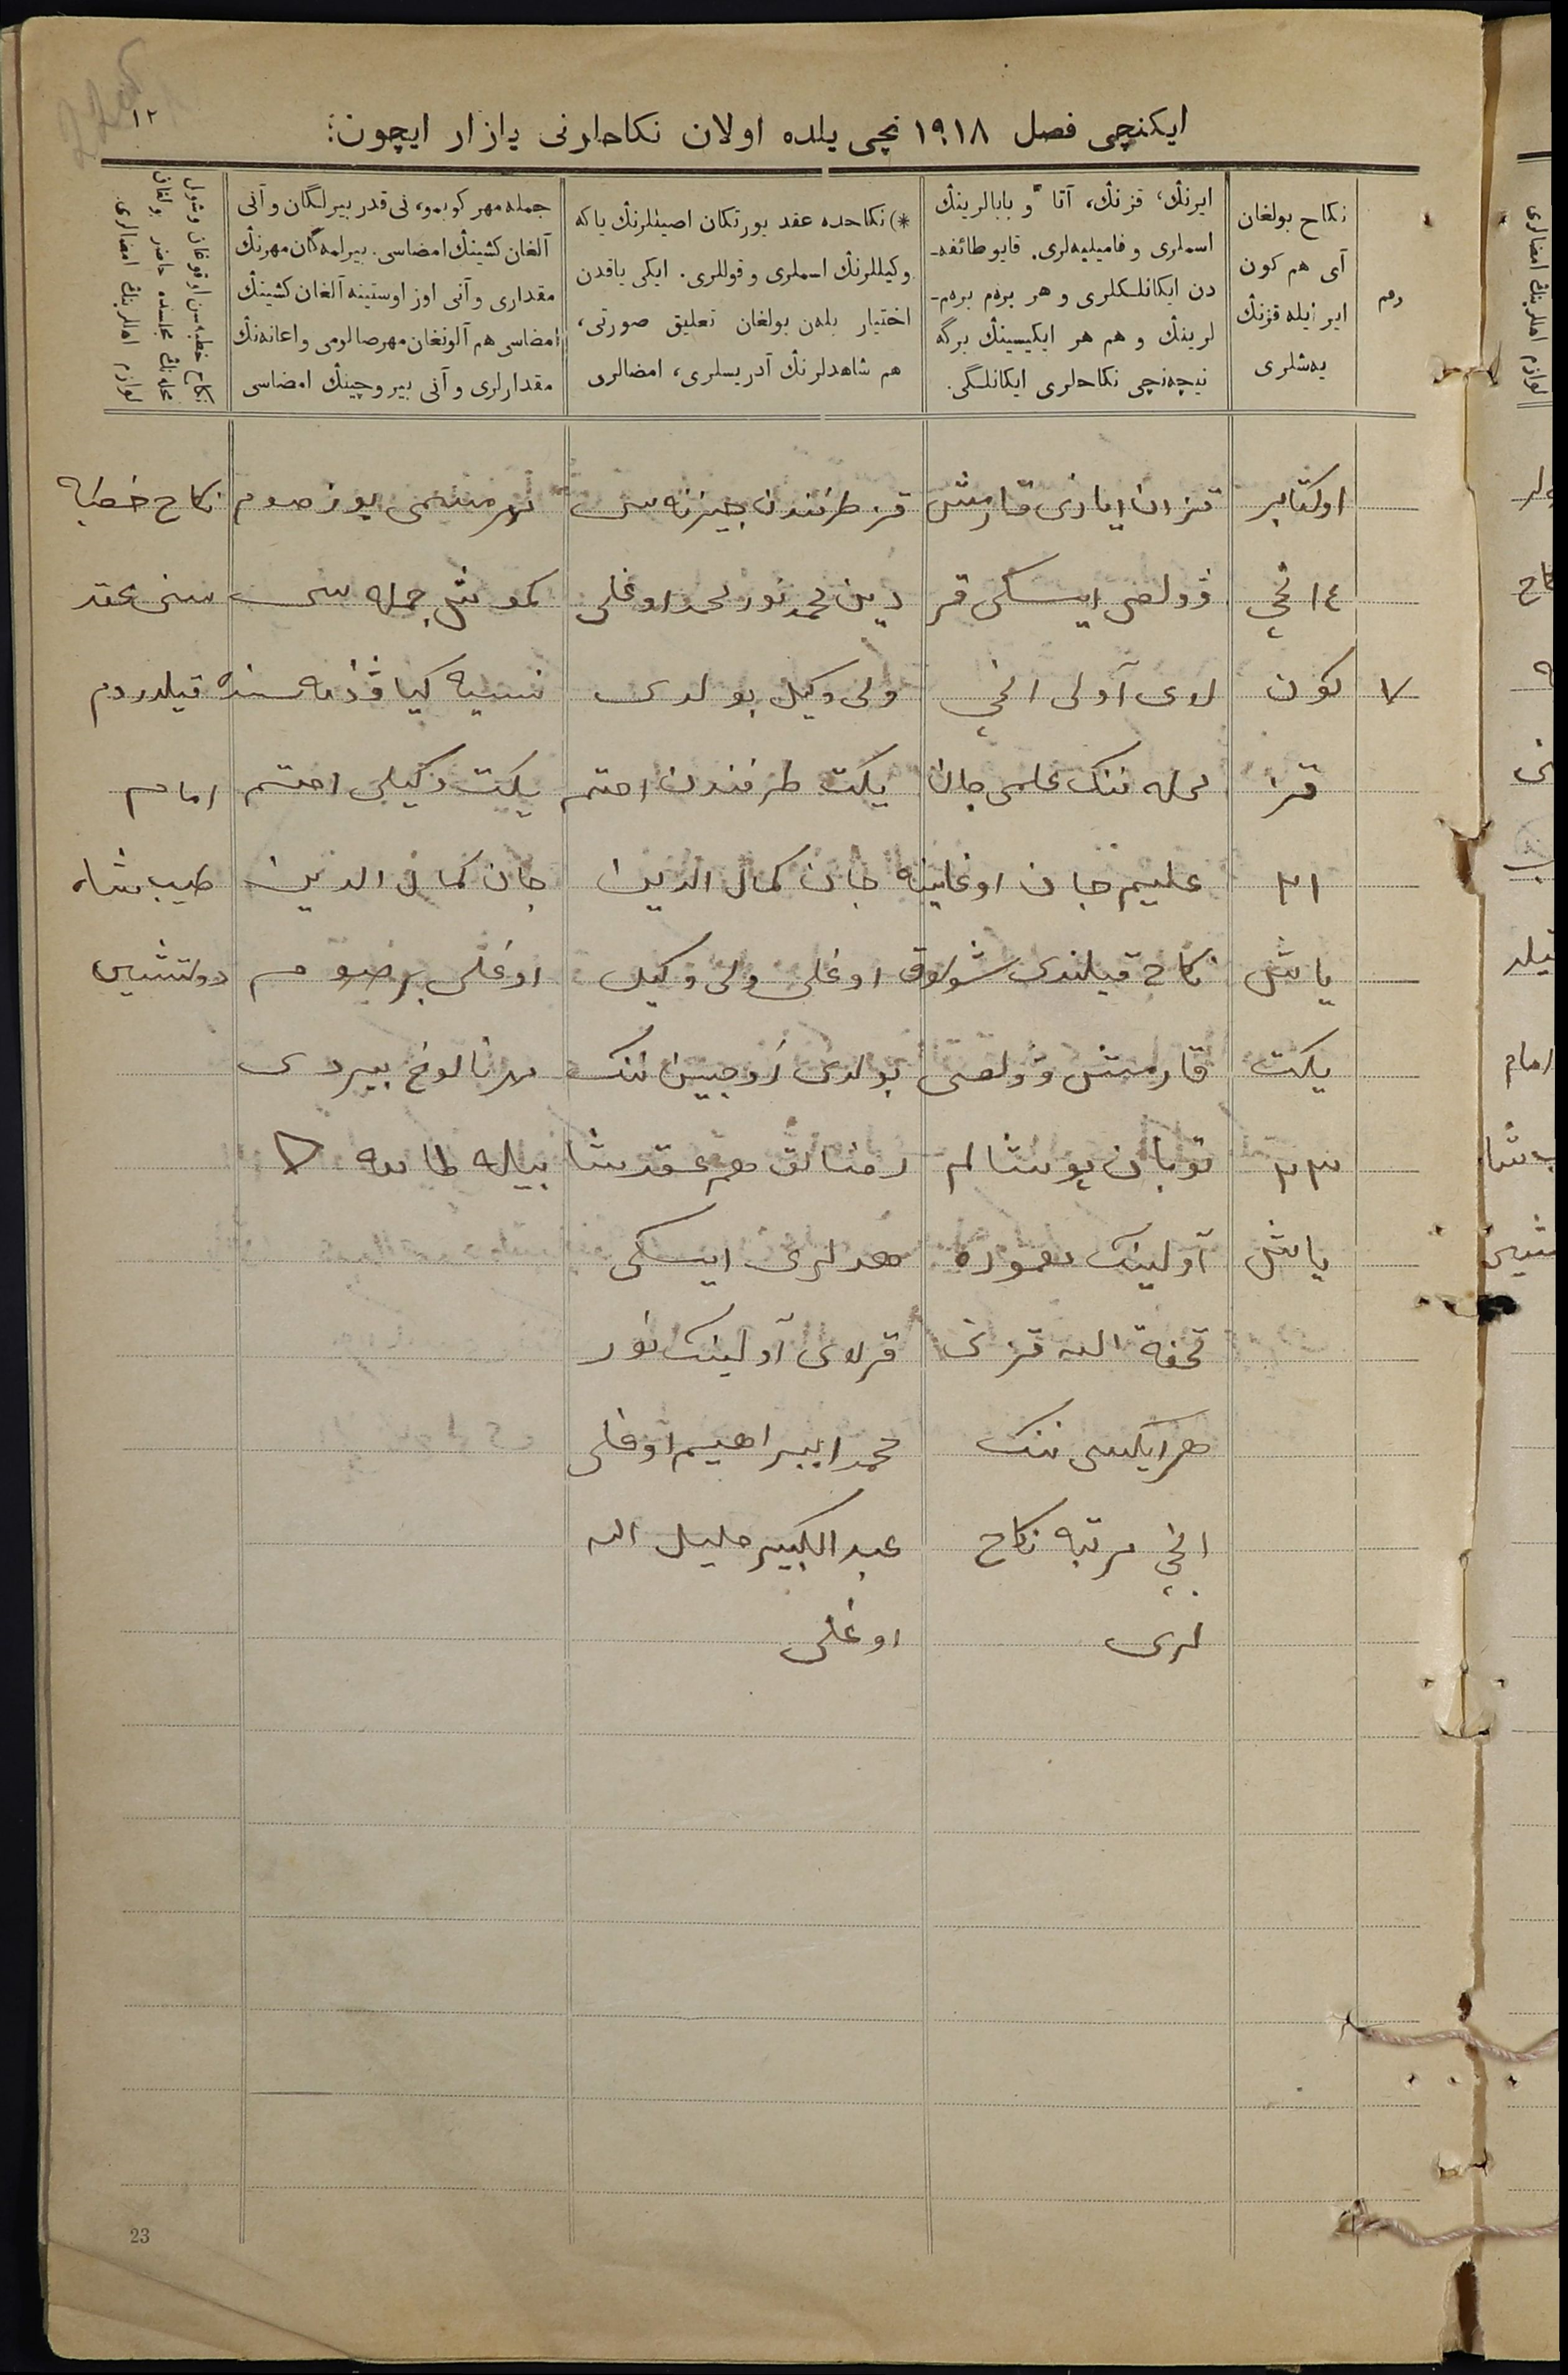 ایکنچی فصل ١٩١٨ نچی یلده اولان نکاحلرنی یازار ایچون:
١٢
رقم
نکاح بولغان
آی هم کون
ایر ایله قزنڭ
یەشلری
ایرنڭ، قزنڭ، آتا و بابالرینڭ
اسملری و فامیلیەلری. قایو طائفه‌ـ
دن ایکانلکلری و هر برەم برەم‌ـ
لرینڭ و هم هر ایکیسینڭ برگه
نیچه‌نچی نکاحلری ایکانلگی.
*) نکاحده عقد یورتکان اصیللرنڭ یاکه
وکیللرنڭ اسملری و قوللری. ایکی یاقدن
اختیار بلەن بولغان تعلیق صورتی،
هم شاهدلرنڭ آدریسلری، امضالری
جمله مهر کوبمو، نی قدر بیرلگان و آنی
آلغان کشینڭ امضاسی. بیرلمه‌گان مهرنڭ
مقداری و آنی اوز اوستینه آلغان کشینڭ
امضاسی هم آلونغان مهر صالومی و اعانه‌نڭ
مقدارلری و آنی بیروچینڭ امضاسی
نکاح خطبه‌سن اوقوغان و شول
محله‌نڭ مجلسنده حاضر بولغان
لوازم اهللرینڭ امضالری.
٧
اوکتابر
١٤ نچی
کون
قز
٢١
یاش
یکت
٢٣
یاش
قزان ایازی قارمش
ڤولصی ایسکی قر
لای آولی ١نچی
محله ننک علمی جان
علیم جان اوغلینه
نکاح قیلندی شولوق
قارمش ڤولصی
توبان پوشالم
آولینک معموره
تحفة الله قزی
هر ایکسی ننک
١نچی مرتبه نکاح
لری
قز طرفندن جیزنه سی
دین محمد نور محمد اوغلی
ولی وکیل بولدی
یکت طرفندن احتم
جان کمال الدین
اوغلی ولی وکیل
بولدی زوجین ننک
رضالق هم عقد شا
هدلری ایسکی
قرلای آولینک نور
محمد ایبراهیم اوغلی
عبد الکبیر خلیل الله
اوغلی
مهر مسمی یوز صوم
کموش جمله سی
نسیه کیاڤ ذمه سنده
یکت وکیلی احتم
جان کمال الدین
اوغلی بر صوم
مهر نالوغ بیردی
بیله
نکاح خطبه
سنی عقد
قیلدردم
امام
طیب شاه
دولتشین
23